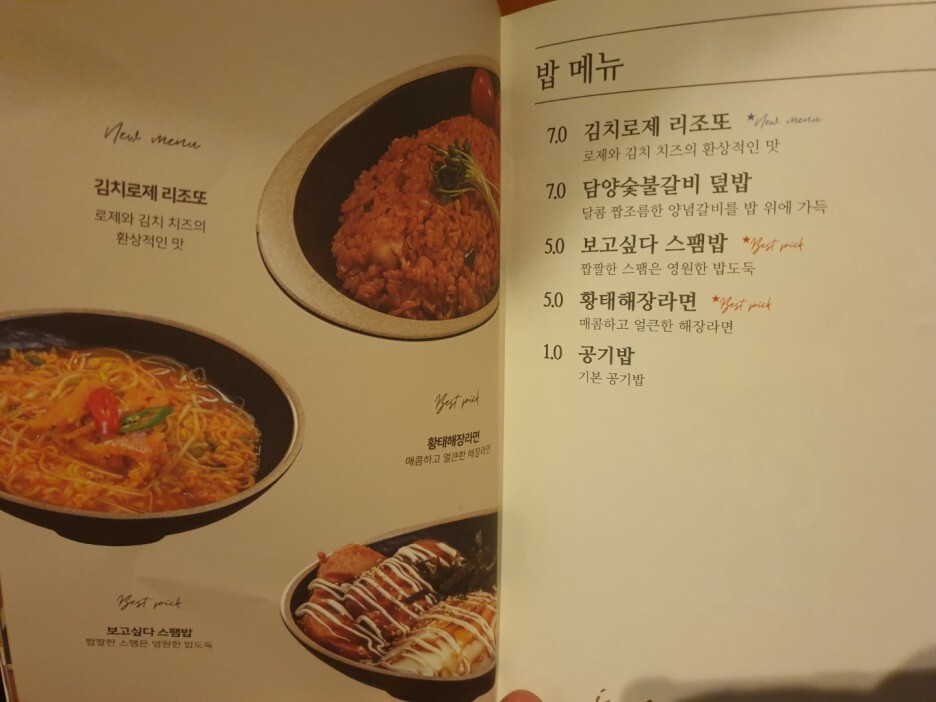 New menu
김치로제 리조또
로제와 김치 치즈의
환상적인 맛
Best pick
황태해장라면
매콤하고 얼큰한 해장라면
Best pick
보고싶다 스팸밥
짭짤한 스팸은 영원한 밥도둑
밥 메뉴
7.0 김치로제 리조또 *New menu
로제와 김치 치즈의 환상적인 맛
7.0 담양숯불갈비 덮밥
달콤 짭조름한 양념갈비를 밥 위에 가득
5.0 보고싶다 스팸밥 *Best pick
짭짤한 스팸은 영원한 밥도둑
5.0 황태해장라면 *Best pick
매콤하고 얼큰한 해장라면
1.0 공기밥
기본 공기밥